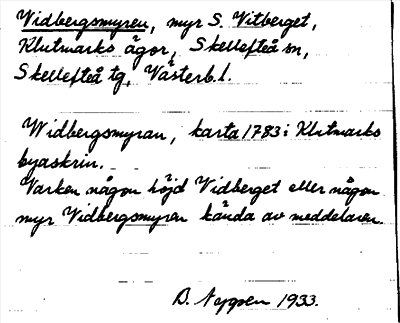 Widbergsmyren, myr S. Vitberget,
Klutmarks ägor, Skellefteå sn,
Skellefteå tg, Västerb. l.
Widbergsmyran, karta 1783 i Klutmarks
byaskrin.
Varken någon höjd Vidberget eller någon
myr Widbergsmyren kända av meddelaren.
B. 1933.